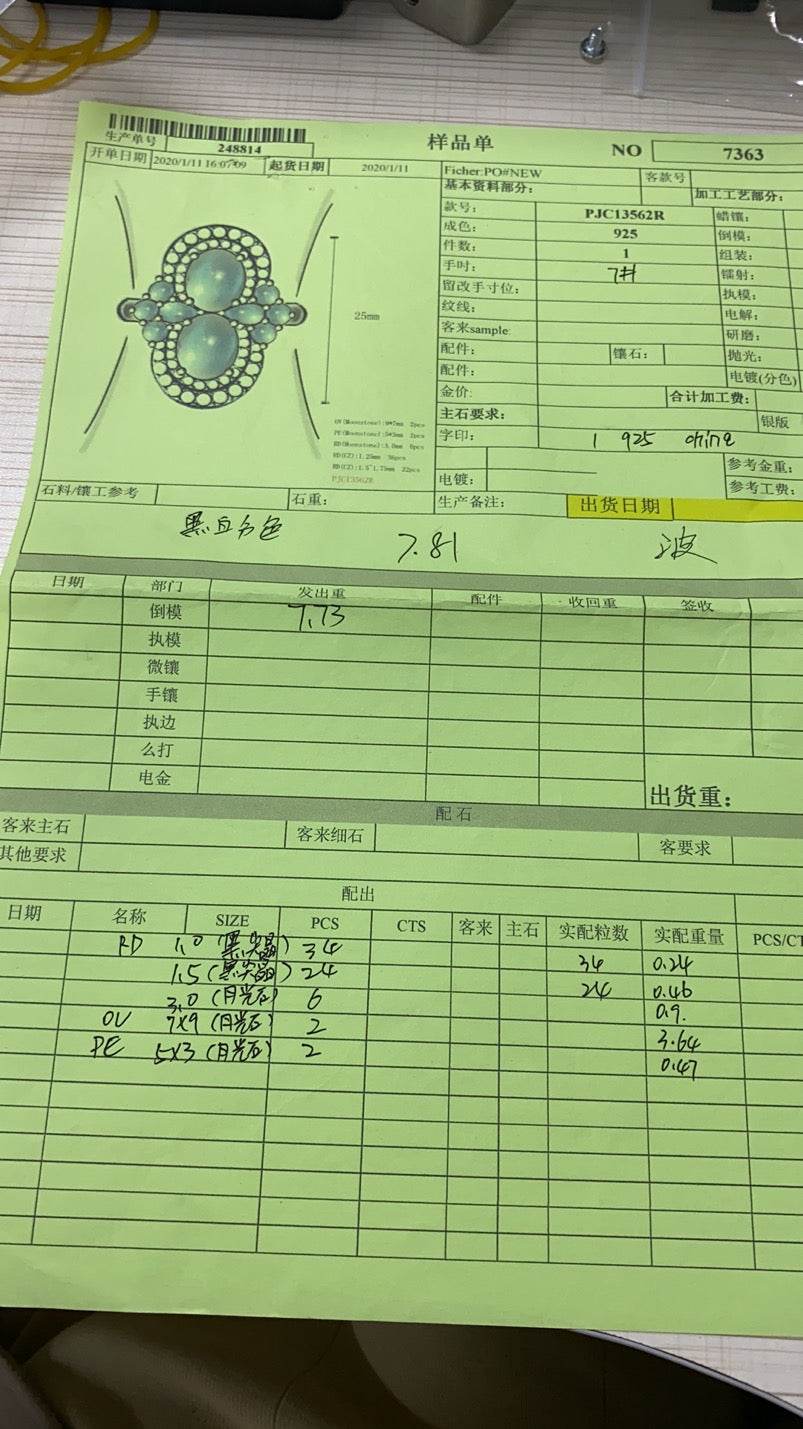 样品单
NO 7363
生产单号 248814
开单日期 2020/1/11 16:07:09 起货日期 2020/1/11
Ficher:PO#NEW 客款号
基本资料部分: 加工工艺部分:
款号: PJC13562R 蜡镶:
成色: 925 倒模:
件数: 1 组装:
手吋: 7# 镭射:
留改手寸位: 执模:
纹线: 电解:
客来sample: 研磨:
配件: 镶石: 抛光:
配件: 电镀(分色)
金价: 合计加工费:
主石要求: 银版
字印: 1 925 china
参考金重:
电镀: 参考工费:
25mm
OV(Moonstone):9*7mm 2pcs
PE(Moonstone):5*3mm 2pcs
RD(Moonstone):3.0mm 6pcs
RD(CZ):1.25mm 36pcs
RD(CZ):1.5~1.75mm 22pcs
PJC13562R
石料/镶工参考 石重: 生产备注: 出货日期
黑白分色 7.81 波
日期 部门 发出重 配件 收回重 签收
倒模 7.73
执模
微镶
手镶
执边
么打
电金
出货重:
配石
客来主石 客来细石 客要求
其他要求
配出
日期 名称 SIZE PCS CTS 客来 主石 实配粒数 实配重量 PCS/CT
RD 1.0 (黑尖晶) 34 34 0.24
1.5 (黑尖晶) 24 24 0.46
3.0 (月光石) 6 0.9.
OV 7x9 (月光石) 2 3.64
PE 5x3 (月光石) 2 0.47